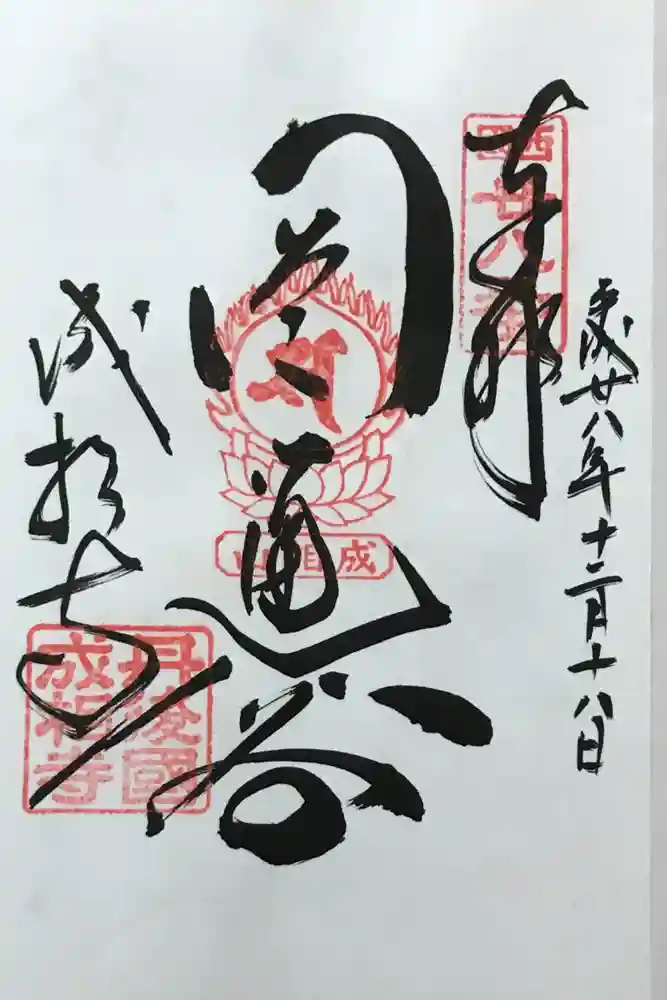 平成廿八年十二月十八日
奉拝
西國
廿八番
圓通閣
成相山
成相寺
丹後國
成相寺